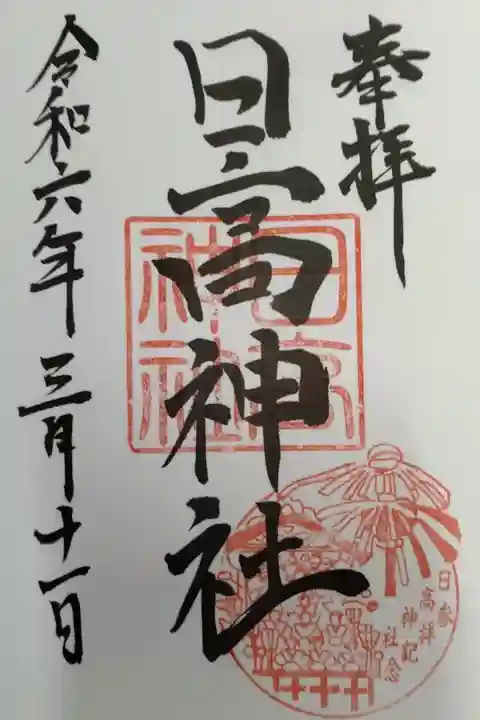 奉拝
日高神社
令和六年三月十一日
日高
神社
参拝
記念
日高
神社